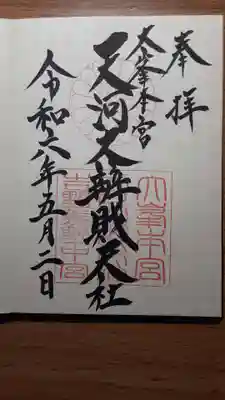 奉拝
大峯本宮
天河大辨財天社
令和六年五月二日